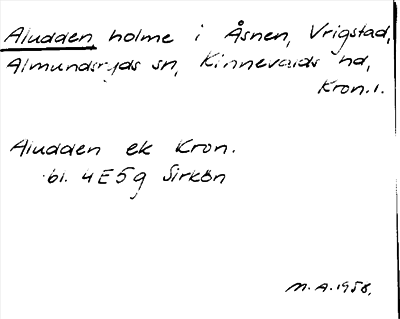 Aludden, holme i Åsnen, Vrigstad,
Almundsryds sn, Kinnevalds hd,
Kron.l.
Aludden ek Kron.
bl. 4E5g Sirkön
M.A. 1958.